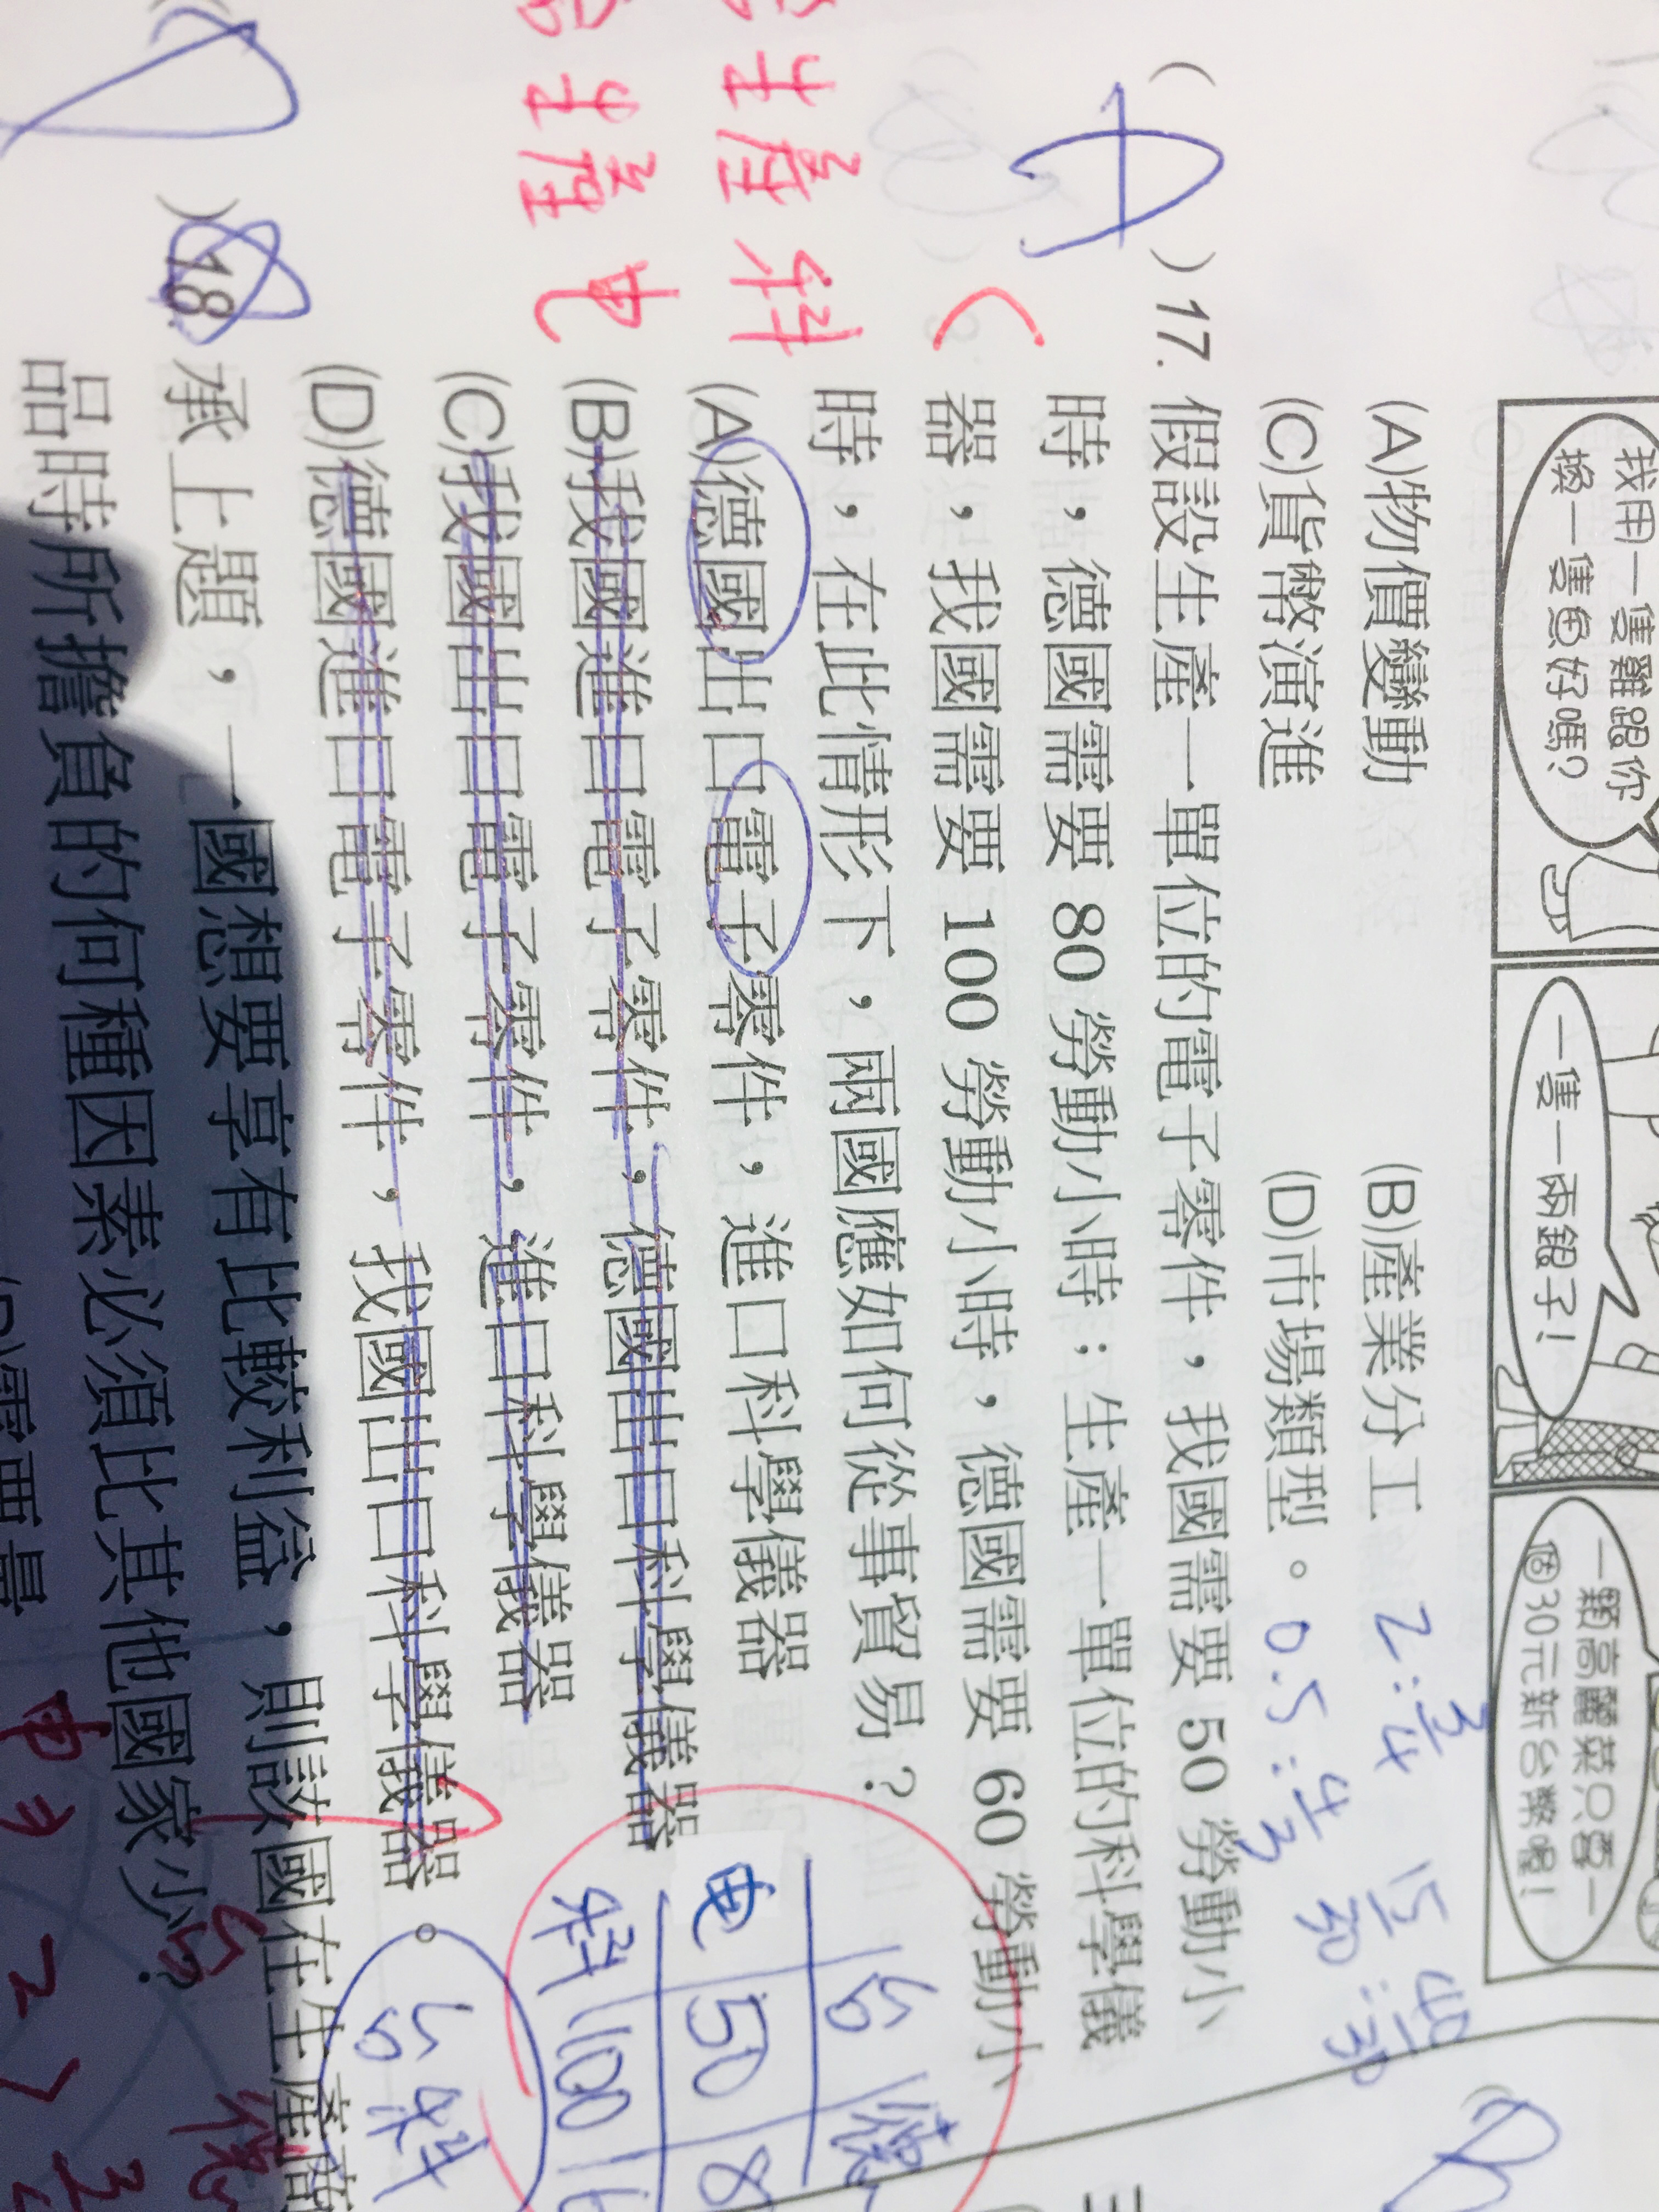 我用一隻雞跟你
換一隻魚好嗎？
一隻一兩銀子！
一顆高麗菜只要一
個30元新台幣喔！
(A)物價變動 (B)產業分工
(C)貨幣演進 (D)市場類型。
( A )17. 假設生產一單位的電子零件，我國需要 50 勞動小
時，德國需要 80 勞動小時；生產一單位的科學儀
器，我國需要 100 勞動小時，德國需要 60 勞動小
時，在此情形下，兩國應如何從事貿易？
(A)德國出口電子零件，進口科學儀器
(B)我國進口電子零件，德國出口科學儀器
(C)我國出口電子零件，進口科學儀器
(D)德國進口電子零件，我國出口科學儀器。
)18. 承上題，一國想要享有比較利益，則該國在生產商
品時所擔負的何種因素必須比其他國家小？
需要量
2 : 3/4
0.5 : 4/3
生產 科
生產 电
台 德
电 50 8
科 100 6
台 科